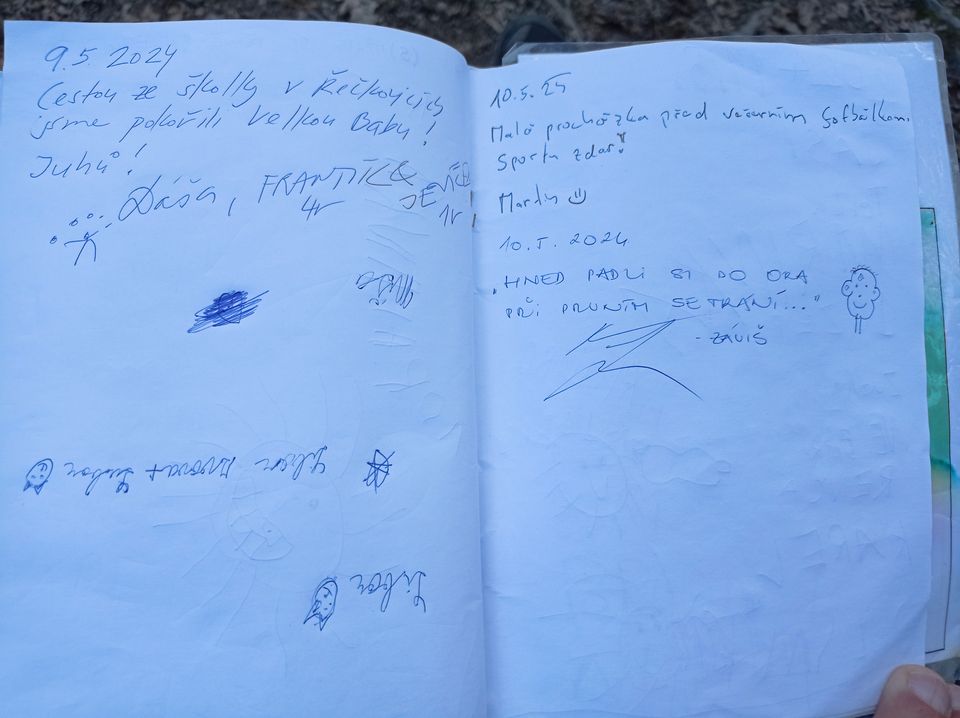 9.5.2024
Cestou ze školky v Řečkovicích
jsme pokořili Velkou Babu!
Juhů!
Dáša, FRANTÍK
4r
1r
Libor
Libor
10.5.25
Malá procházka před večerním fotbálkem.
Sportu zdar!
Martin
10.5.2024
"HNED PADLI SI DO OKA
PŘI PRVNÍM SETKÁNÍ..."
- ZÁVIŠ